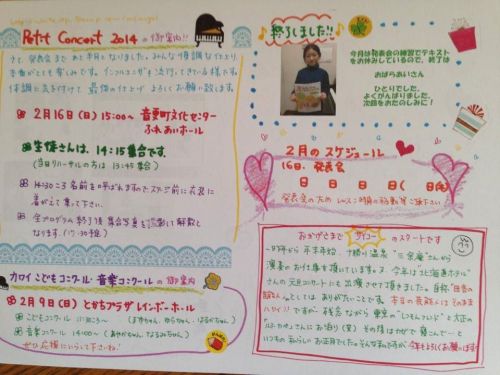 Petit Concert 2014 の御案内!!
さて、発表会まであと半月になりました。みんな順調な仕上り
本番がとても楽しみです。インフルエンザも流行してきている様です。
体調に気を付けて最後の仕上げよろしくお願い致します。
2月16日(日) 15:00〜 音更町文化センター
ふれあいホール
生徒さんは、14:15集合です。
(当日リハーサルの方は 13:45集合)
14:30ころ名前を呼ばれますのでステージ前に衣装に
着がえて集って下さい。
全プログラム終了後集合写真を撮影して解散と
なります。(17:30予定)
カワイこどもコンクール・音楽コンクールの御案内
2月9日(日) とかちプラザ レインボーホール
こどもコンクール
音楽コンクール 14:00〜
ぜひ応援にいらして下さいね!
終了しました!!
今月は発表会の練習でテキスト
をお休みしているので、終了は
おばらあいさん
ひとりでした。
よくがんばりました。
次回をおたのしみに!
2月のスケジュール
16日、発表会
日 日 日 日( 日)
発表会の為 レッスン時間の移動等ご了承下さい
おかげさまで サイコー のスタートです
年末年始、十勝川温泉 "三余庵"さんから
演奏のお仕事を頂いています。又、今年は北海道ホテル
さんの元旦コンサートにも出演させて頂きました。
としてはありがたいことです。
いつもの私らしいお正月でした。そんな私ですが、今年もよろしくお願いします。